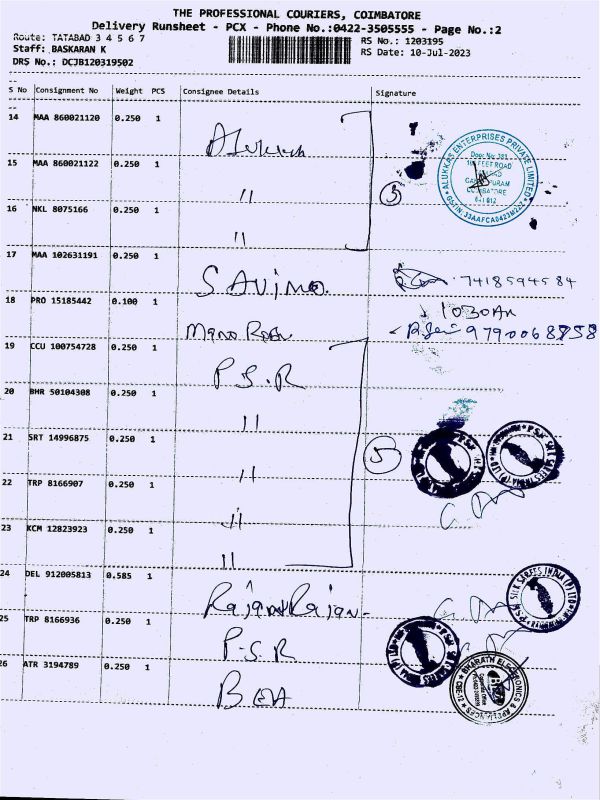 THE PROFESSIONAL COURIERS, COIMBATORE
Delivery Runsheet - PCX - Phone No.:0422-3505555 - Page No.:2
Route: TATABAD 3 4 5 6 7
Staff: BASKARAN K
DRS No.: DCJB120319502
RS No.: 1203195
RS Date: 10-Jul-2023
S No Consignment No Weight PCS Consignee Details Signature
14 MAA 860021120 0.250 1
15 MAA 860021122 0.250 1 〃
16 NKL 8075166 0.250 1 〃
3
ALUKKAS ENTERPRISES PRIVATE LIMITED
Door No: 103
100 FEET ROAD
COIMBATORE
641 012
GSTIN 33AAFCA0423M2ZZ
17 MAA 102631191 0.250 1 7418594584
18 PRO 15185442 0.100 1 1030AM
9790068858
19 CCU 100754728 0.250 1 P.S.R
20 BHR 50104308 0.250 1 〃
21 SRT 14996875 0.250 1 〃
22 TRP 8166907 0.250 1 〃
23 KCM 12823923 0.250 1 〃
5
24 DEL 912005813 0.585 1
25 TRP 8166936 0.250 1 P-S-R
26 ATR 3194789 0.250 1
PSR SILK SAREES INDIA (P) LTD
BHARATH ELECTRONICS & APPLIANCES